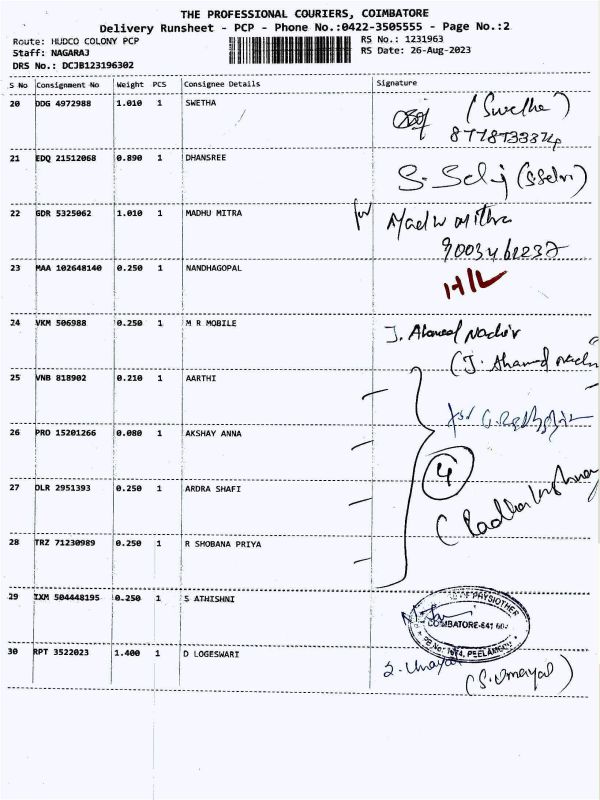 THE PROFESSIONAL COURIERS, COIMBATORE
Delivery Runsheet - PCP - Phone No.:0422-3505555 - Page No.:2
Route: HUDCO COLONY PCP
RS No.: 1231963
Staff: NAGARAJ
RS Date: 26-Aug-2023
DRS No.: DCJB123196302
S No Consignment No Weight PCS Consignee Details Signature
20 DDG 4972988 1.010 1 SWETHA
(Swetha)
21 EDQ 21512068 0.890 1 DHANSREE
S. Selvi (S.Selvi)
22 GDR 5325062 1.010 1 MADHU MITRA
for Madhu mitra
23 MAA 102648140 0.250 1 NANDHAGOPAL
H/L
24 VKM 506988 0.250 1 M R MOBILE
J. Ahamed Nachir
(J. Ahamed Nachir
25 VNB 818902 0.210 1 AARTHI
for
26 PRO 15201266 0.080 1 AKSHAY ANNA
4
27 DLR 2951393 0.250 1 ARDRA SHAFI
(Radhakrishnan
28 TRZ 71230989 0.250 1 R SHOBANA PRIYA
29 IXM 504448195 0.250 1 S ATHISHNI
OF PHYSIOTHER
COIMBATORE-641 004
PB No: 1674, PEELAMEDU
30 RPT 3522023 1.400 1 D LOGESWARI
S. Umayal
(S. Umayal)